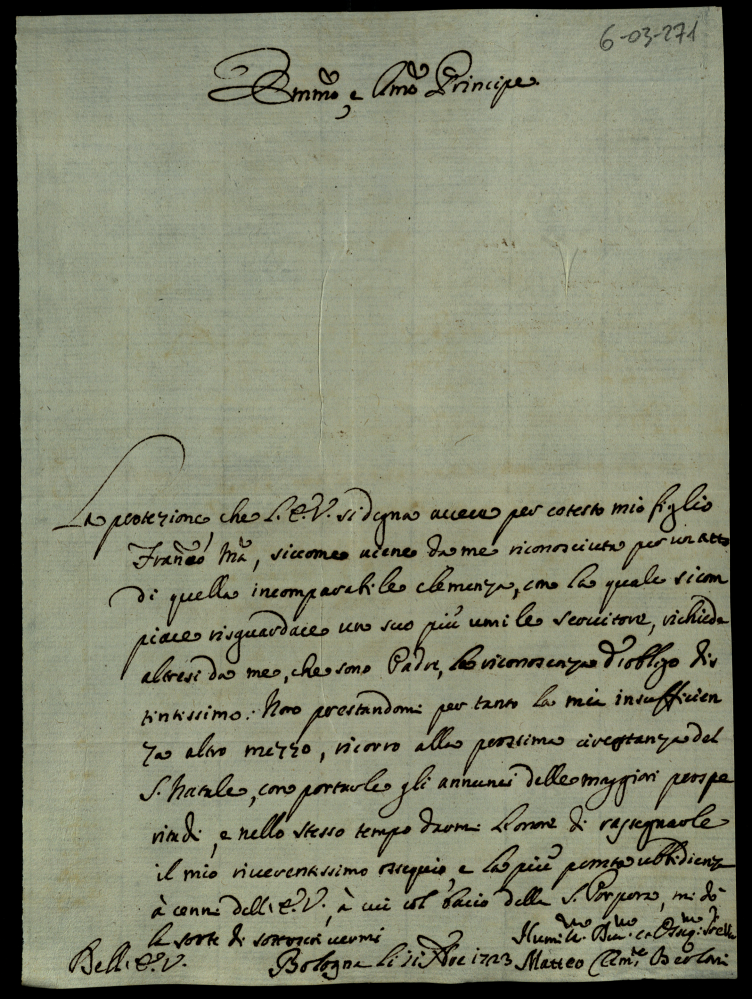 6-03-271
Emmo, e Rmo Principe
La protezione che L. E. V. si degna avere per cotesto mio figlio
Franco Ma, siccome viene da me riconosciuta per un atto
di quella incomparabile clemenza, con la quale si com
piace risguardare un suo più umile servitore, richiede
altresì da me, che sono Padre, la riconoscenza d'obligo dis
tintissimo. Non prestandomi per tanto la mia insufficien
za altro mezzo, ricorro alla prossima circostanza del
S. Natale, con portarle gli annunci delle maggiori prospe
rità di, e nello stesso tempo darmi l'onore di rassegnarle
il mio riverentissimo ossequio, e la più pronta ubbidienza
à cenni dell'E. V., à cui col bacio della S. Porpora, mi dò
la sorte di sottoscrivermi
Dell'E. V.
Bologna li 11 Xbre 1723
Humilo. Divo. ed Obligmo
Matteo